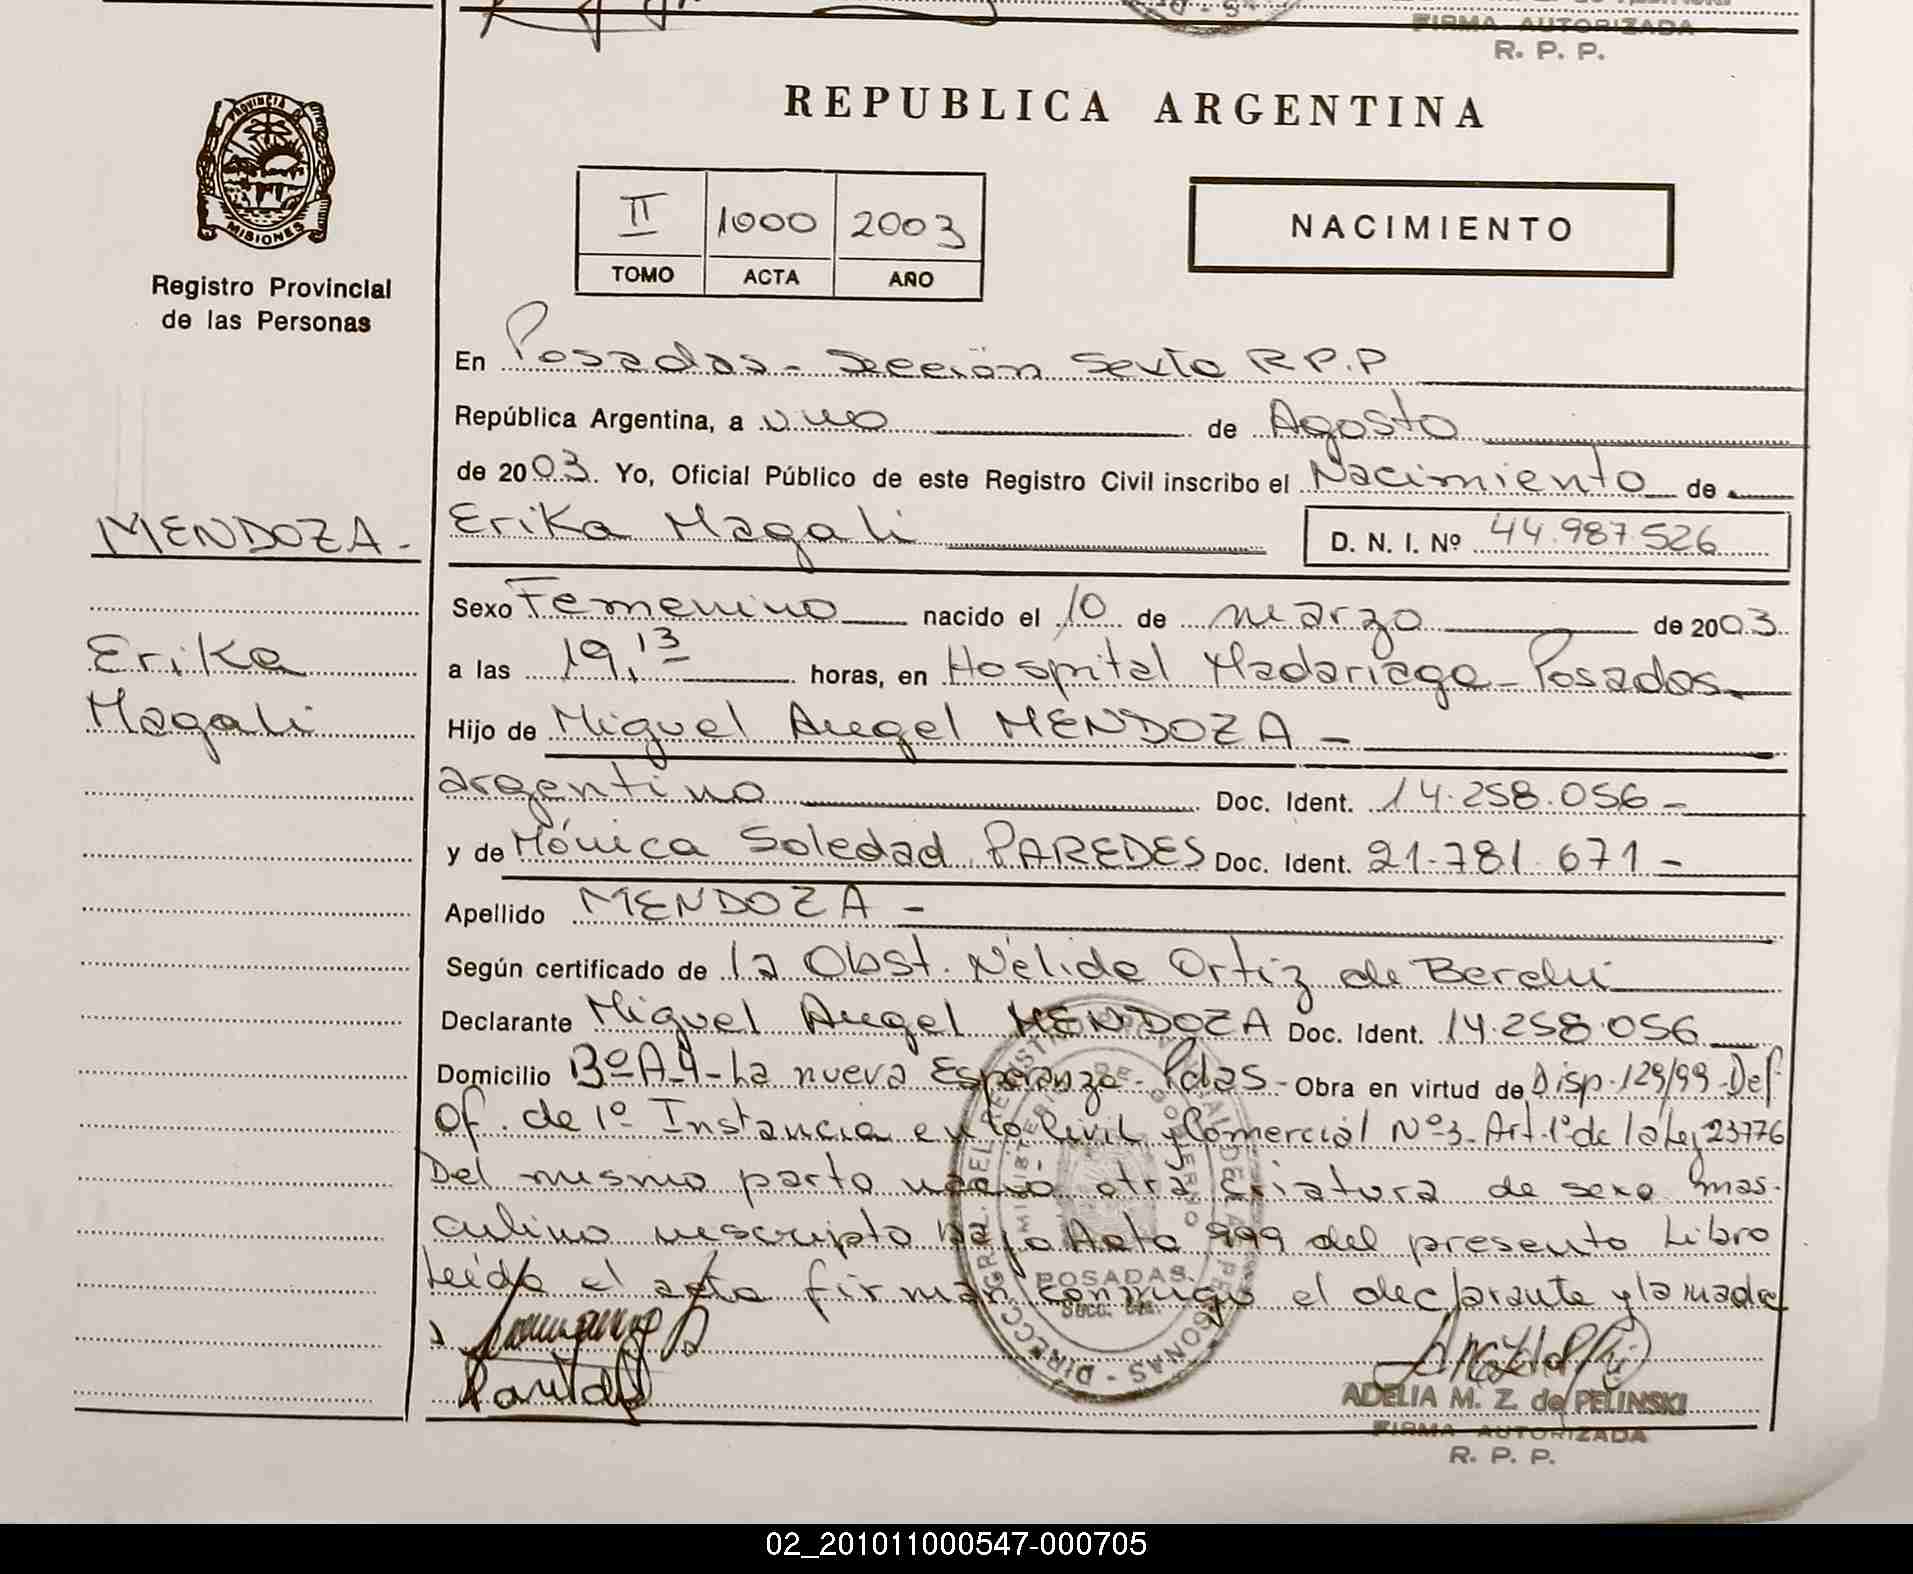 FIRMA AUTORIZADA
R. P. P.
PROVINCIA
MISIONES
Registro Provincial
de las Personas
REPUBLICA ARGENTINA
II 1000 2003
TOMO ACTA AÑO
NACIMIENTO
En Posadas - Sección Sexta R.P.P
República Argentina, a uno de Agosto
de 2003. Yo, Oficial Público de este Registro Civil inscribo el Nacimiento de
MENDOZA -
Erika Magali
D. N. I. Nº 44.987.526
Sexo Femenino nacido el 10 de marzo de 2003.
Erika
Magali
a las 19,13 horas, en Hospital Madariaga - Posadas
Hijo de Miguel Angel MENDOZA -
argentino Doc. Ident. 14.258.056 -
y de Mónica Soledad PAREDES Doc. Ident. 21.781.671 -
Apellido MENDOZA -
Según certificado de la Obst. Nélida Ortiz de
Declarante Miguel Angel MENDOZA Doc. Ident. 14.258.056
Domicilio Bº A-4 - La nueva Esperanza - Pdas - Obra en virtud de Disp. 129/99 - Def
Of. de 1º Instancia en lo Civil y Comercial Nº 3 - Art. 1º de la Ley 23776
Del mismo parto nació otra criatura de sexo mas-
culino inscripto bajo Acta 999 del presente Libro
Leída el acta firman conmigo el declarante y la madre
POSADAS
ADELIA M. Z. de PELINSKI
FIRMA AUTORIZADA
R. P. P.
02_201011000547-000705